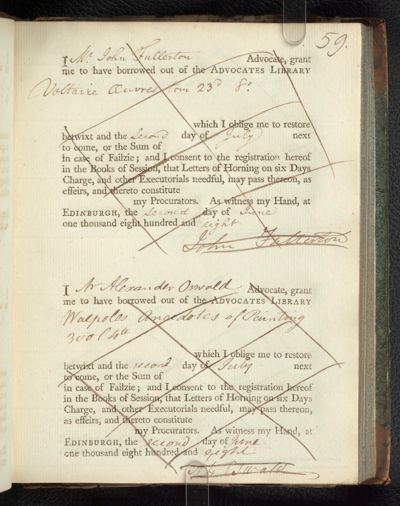 59.
I Mr. John Fullerton Advocate, grant
me to have borrowed out of the ADVOCATES LIBRARY
Voltaire Œuvres tom 23d 8o.
which I oblige me to restore
betwixt and the second day of July next
to come, or the Sum of
in case of Failzie; and I consent to the registration hereof
in the Books of Session, that Letters of Horning on six Days
Charge, and other Executorials needful, may pass thereon, as
effeirs, and thereto constitute
my Procurators. As witness my Hand, at
EDINBURGH, the second day of June
one thousand eight hundred and eight
John Fullerton
I Mr Alexander Oswald Advocate, grant
me to have borrowed out of the ADVOCATES LIBRARY
Walpoles Anecdotes of Painting
3 vol 4to
which I oblige me to restore
betwixt and the second day of July next
to come, or the Sum of
in case of Failzie; and I consent to the registration hereof
in the Books of Session, that Letters of Horning on six Days
Charge, and other Executorials needful, may pass thereon,
as effeirs, and thereto constitute
my Procurators. As witness my Hand, at
EDINBURGH, the second day of June
one thousand eight hundred and eight
Oswald